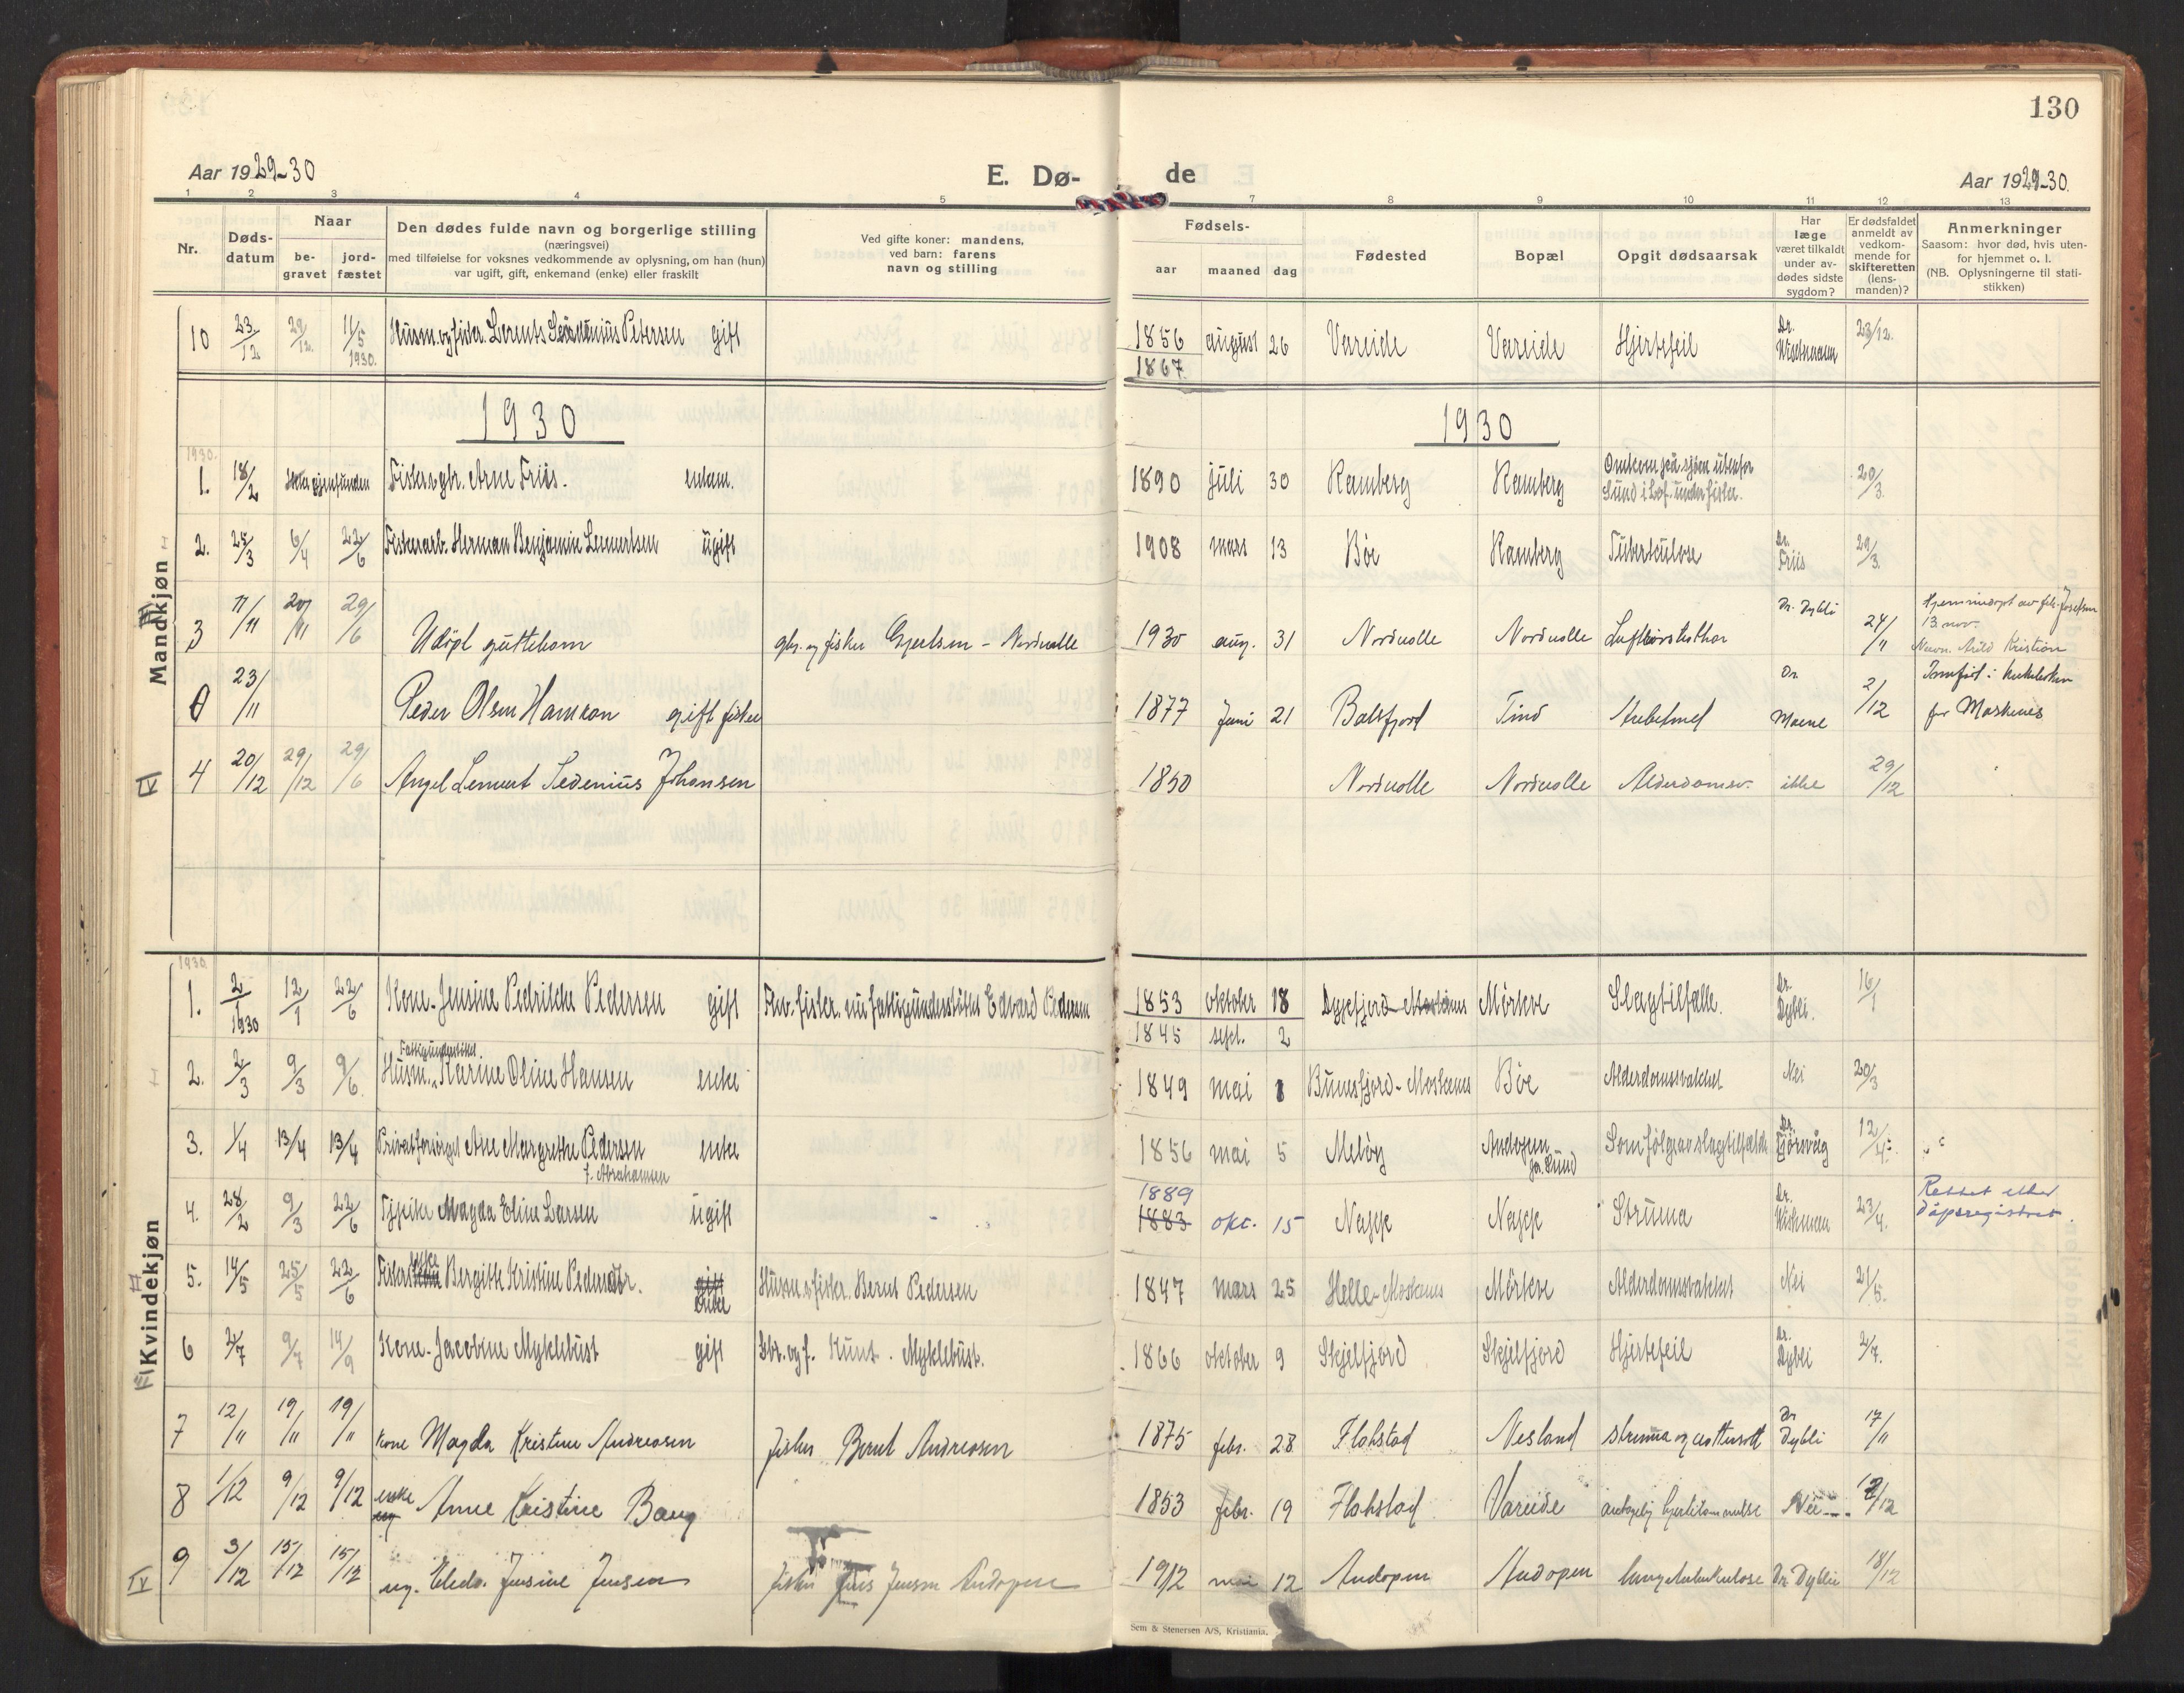 130
Aar 1929-30
E. Dø-
de
Aar 1929-30.
1 2 3 4 5 7 8 9 10 11 12 13
Nr.
Døds-
datum
Naar
be-
gravet
jord-
fæstet
Den dødes fulde navn og borgerlige stilling
(næringsvei)
med tilføielse for voksnes vedkommende av oplysning, om han (hun)
var ugift, gift, enkemand (enke) eller fraskilt
Ved gifte koner: mandens,
ved barn: farens
navn og stilling
Fødsels-
aar maaned dag
Fødested
Bopæl
Opgit dødsaarsak
Har
læge
været tilkaldt
under av-
dødes sidste
sygdom?
Er dødsfaldet
anmeldt av
vedkom-
mende for
skifteretten
(lens-
manden)?
Anmerkninger
Saasom: hvor død, hvis uten-
for hjemmet o. l.
(NB. Oplysningerne til stati-
stikken)
Mandkjøn
10 23/12 29/12. 11/5 1930. Husm. og fisker. Lorents Petersen gift 1856 august 26 Vareide Vareide Hjertefeil Dr. 23/12.
1867
1930 1930
1930.
1. 18/2 Ikke gjenfunden Fisker og gbr. Arne Friis. enkem. 1890 juli 30 Ramberg Ramberg Omkom paa sjøen utenfor 20/3.
Sund i Lof. under fiske.
2. 25/3 6/4 22/6 Fiskerarb. Herman Benjamin Lennertsen ugift 1908 mars 13 Bøe Ramberg Tuberkulose Dr. Friis 29/3.
3 11/11 20/11 29/6 Udøpt guttebarn gbr. og fisker Gjertsen - Nordvolle 1930 aug. 31 Nordvolle Nordvolle Dr. Dybli 24/11 Hjemmedøpt av Josefsen
13. nov.
Navn. Arild Kristian
0 23/11 Peder Olsen Hamran gift fisker 1877 Juni 21 Balsfjord Tind Dr. Moene 2/12 Jomfør i kirkeboken
for Moskenes
4 20/12 29/12 29/6 Angel Lennert Sedenius Johansen 1850 Nordvolle Nordvolle Alderdomsv. ikke 29/12
VI
Kvindekjøn
1930
1. 2/1 1930 12/1 22/6 Kone. Jensine Pedrikke Pedersen gift Fhv. fisker. nu fattigunderstøttet Edvard Pedersen 1853 oktober 18 Moskenes Mørkve Slagtilfælle. Dr. Dybli. 16/1
1845 sept. 2
2. 2/3 9/3 9/6. Husm. Karine Oline Hansen enke 1849 mai 1 Bunesfjord - Moskenes Bøe Alderdomssvakhet Nei 20/3
3. 1/4 13/4 13/4 Privatforsørget Ane Margrethe Pedersen enke 1856 mai 5 Meløy Andopen Som følge av slagtilfælde Dr. 12/4.
f. Abrahamsen pr. Sund
4. 28/2 9/3 22/6 Magda Eline Larsen ugift 1889 Rettet etter
1883 okt. 15 Napp Napp Struma Dr. 23/4. dåpsregistret.
5. 14/5 25/5 22/6 Bergitte Kristine Pedersdtr. gift enke Husm. & fisker. Bernt Pedersen 1847 mars 25 Helle - Moskenes Mørkve Alderdomssvakhet Nei 21/5.
6 2/7 9/7 14/9 Kone. Jacobine Myklebust gift Gbr. og f. Kunt. Myklebust. 1866 oktober 9 Skjelfjord Skjelfjord Hjertefeil Dr. Dybli 2/7.
7 12/11 19/11 19/11 kone Magda Kristine Andreasen fisker Bernt Andreasen 1875 febr. 28 Flakstad Nesland struma og Dr. Dybli 17/11
8 1/12 9/12 9/12 enke ug Anne Kristine Bang 1853 febr. 19 Flakstad Vareide Nei /12
9 3/12 15/12 15/12 ug. Jensine Jensen fisker Jensen Andopen 1912 mai 12 Andopen Andopen lungetuberkulose Dr Dybli 18/12
IV
Sem & Stenersen A/S, Kristiania.